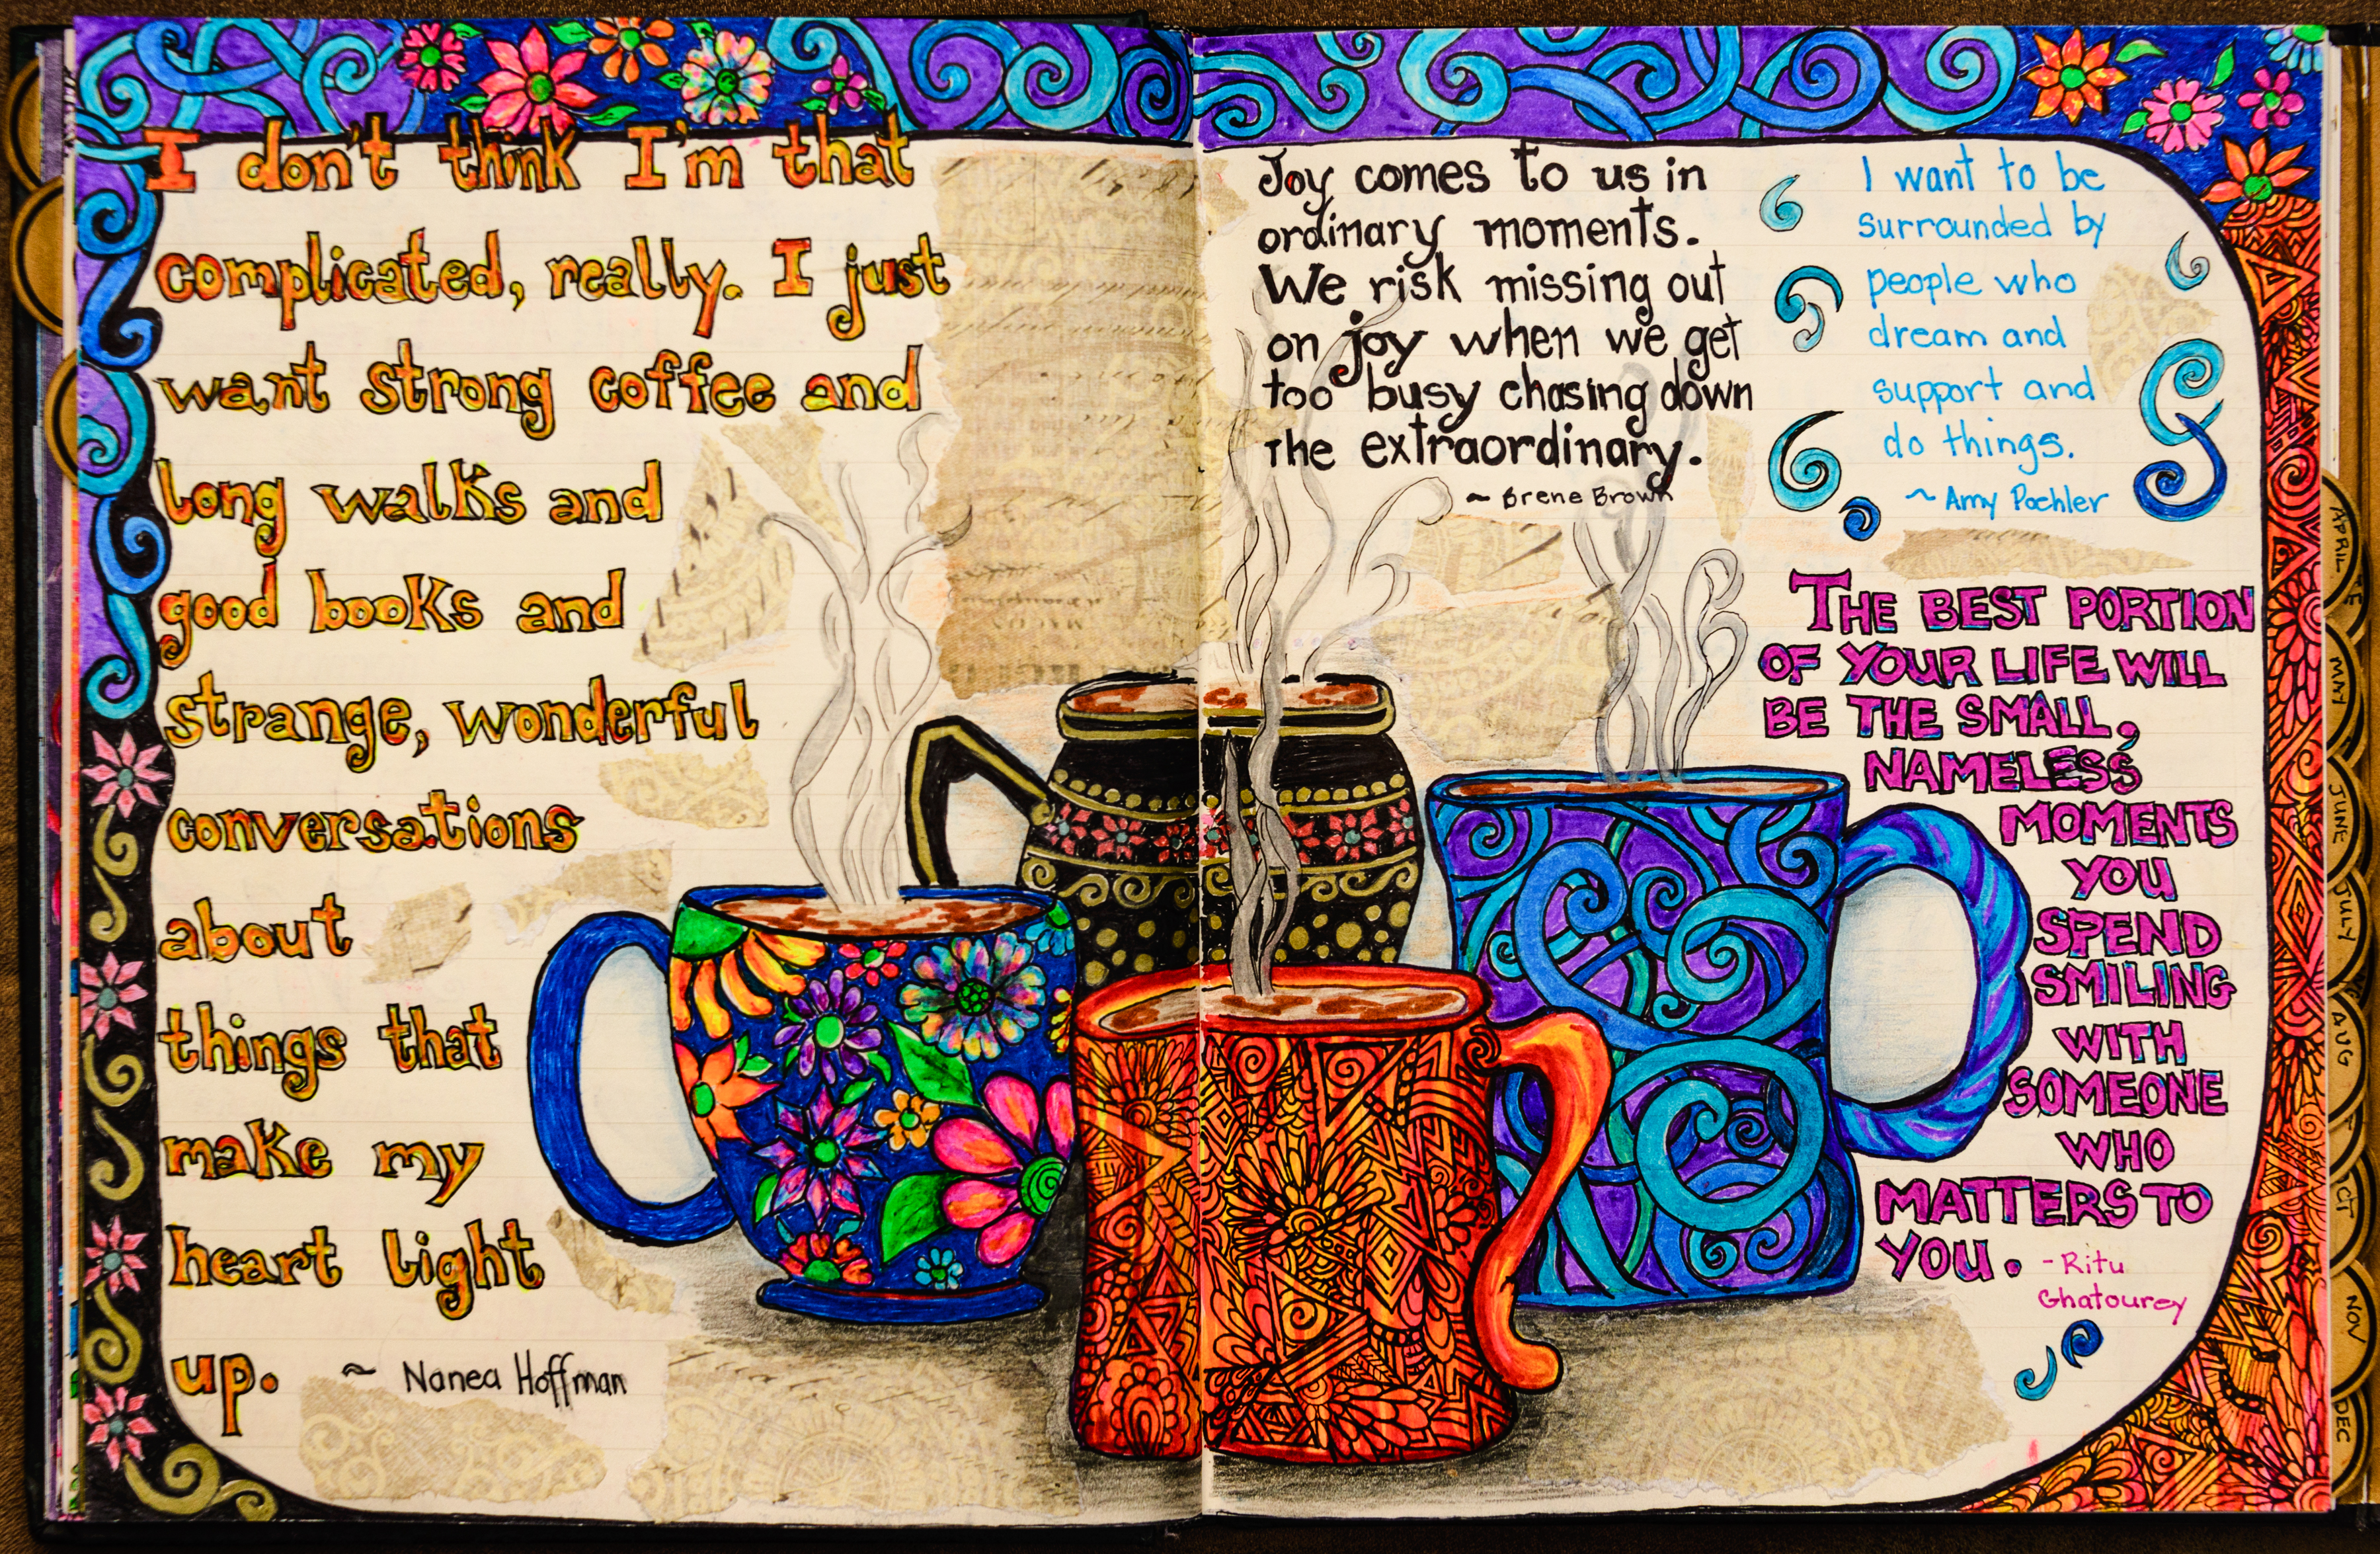 I don't think I'm that
complicated, really. I just
want strong coffee and
long walks and
good books and
strange, wonderful
conversations
about
things that
make my
heart light
up. ~ Nanea Hoffman
Joy comes to us in
ordinary moments.
We risk missing out
on joy when we get
too busy chasing down
the extraordinary.
~ Brene Brown
I want to be
surrounded by
people who
dream and
support and
do things.
~ Amy Poehler
THE BEST PORTION
OF YOUR LIFE WILL
BE THE SMALL,
NAMELESS
MOMENTS
YOU
SPEND
SMILING
WITH
SOMEONE
WHO
MATTERS TO
YOU. - Ritu
Ghatourey
APRIL
MAY
JUNE
JULY
AUG
CT
NOV
DEC